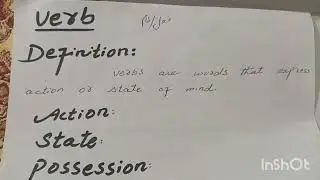 verb
Definition:
verbs are words that express
action or state of mind.
Action:
State:
Possession:
InShOt